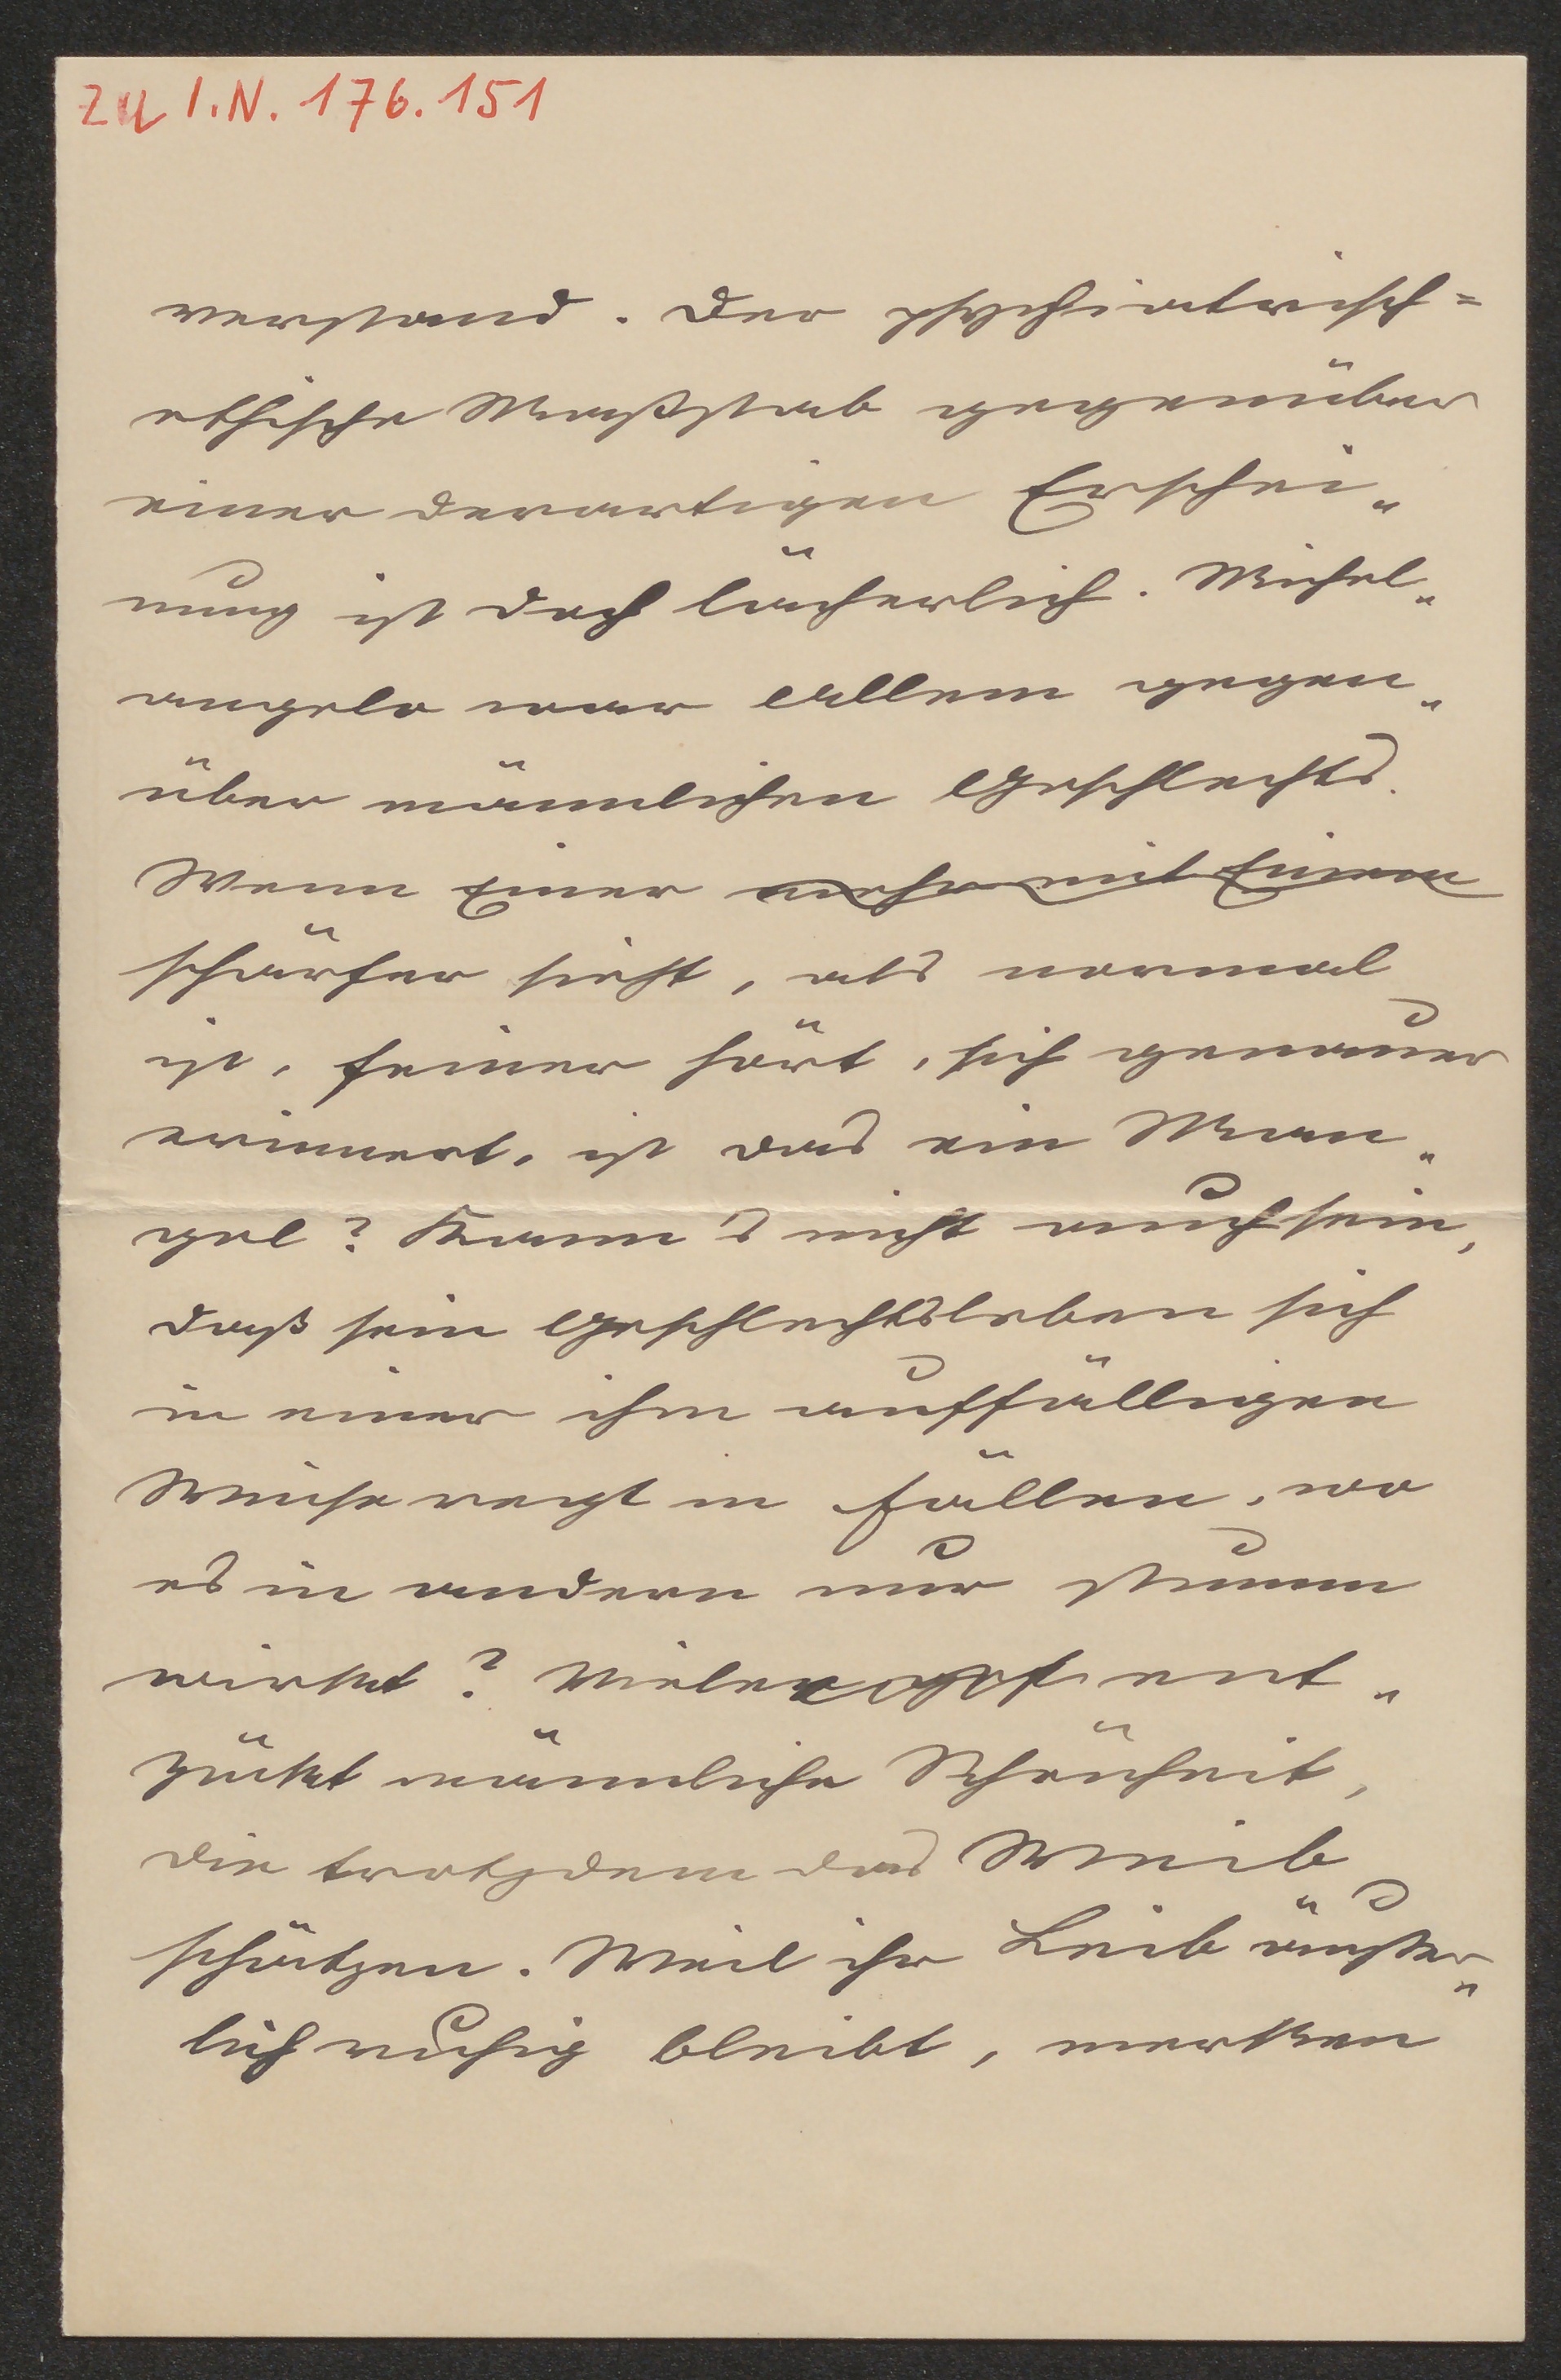 zu I.N. 176.151
verstand. Der psychiatrisch=
ethische Maßstab gegenüber
einer derartigen Erschei„
nung ist doch lächerlich. Michel„
angelo war allem gegen„
über männlichen Geschlechts.
Wenn Einer mehr mit Einem
schärfer sieht, als normal
ist, feiner hört, sich genauer
erinnert, ist das ein Man„
gel? Kann's nicht auch sein,
daß sein Geschlechtsleben sich
in einer ihm auffälligen
Weise regt in Fällen, wo
es in andern nur stumm
wirkt? Viele ent„
zückt männliche Schönheit,
die trotzdem das Weib
schätzen. Weil ihr Leib äußer„
lich ruhig bleibt, merken